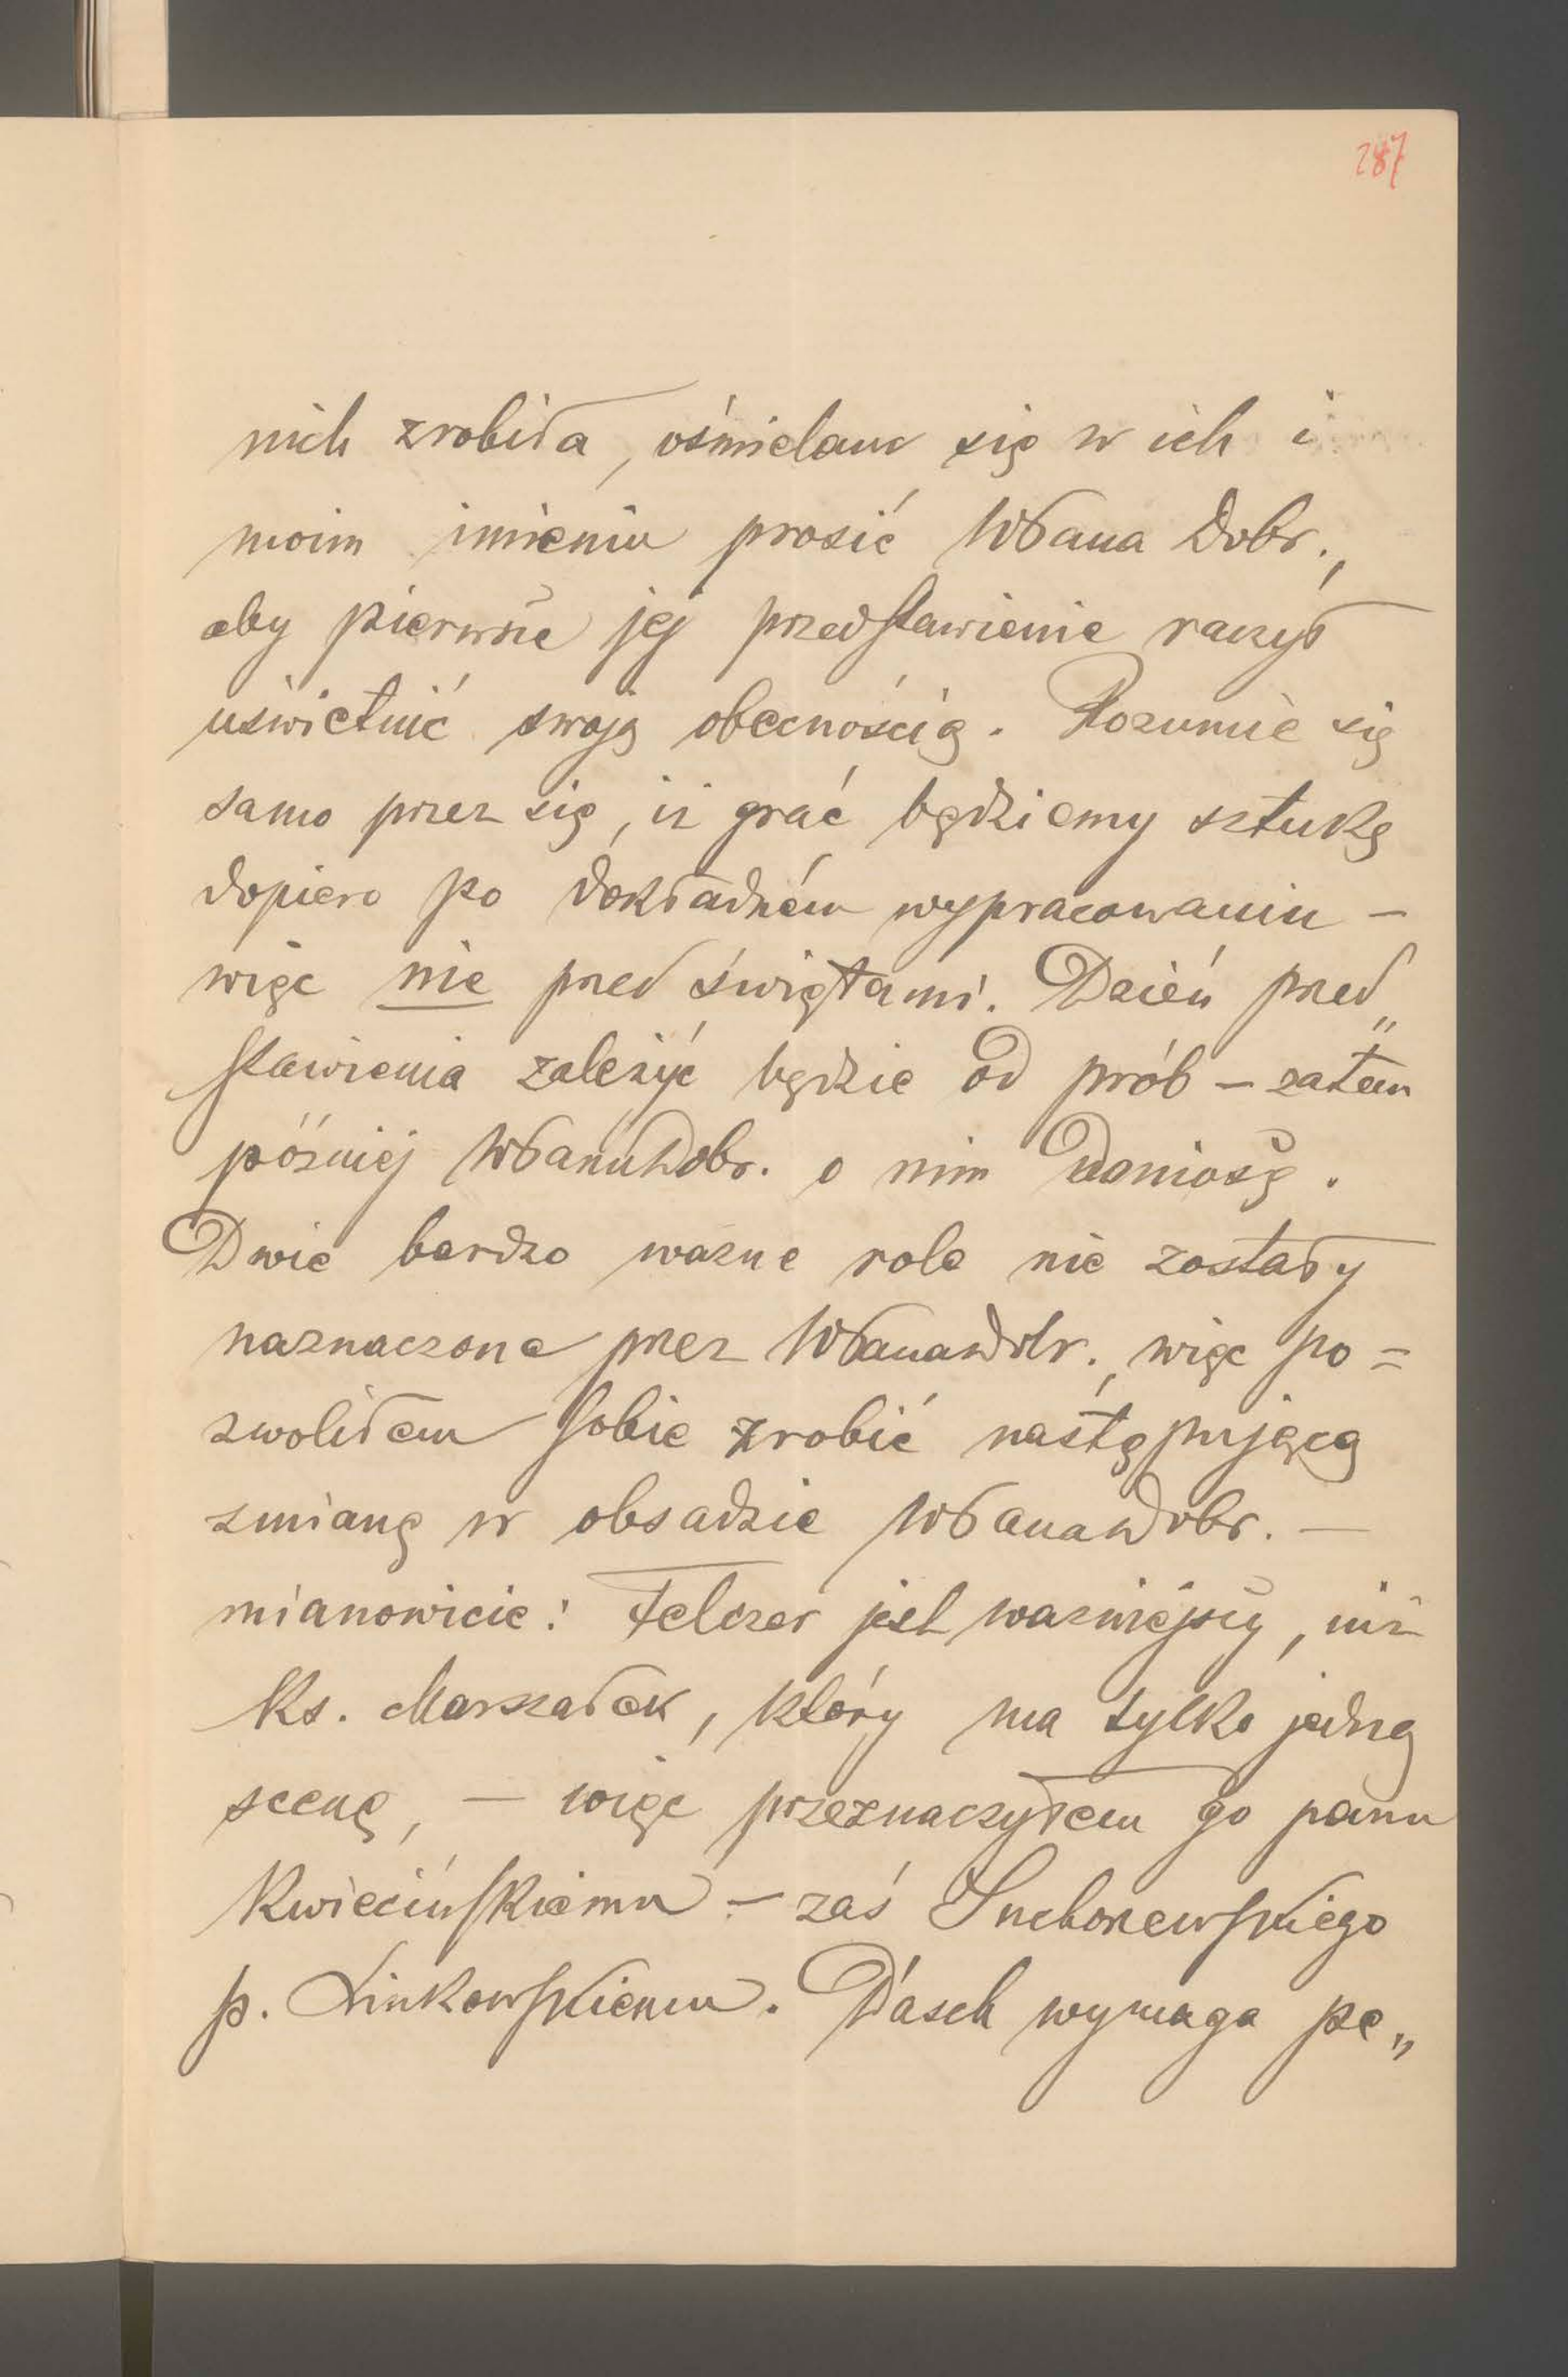 287
nich zrobiła, ośmielam się w ich i
moim imieniu prosić WPana Dobr.,
aby pierwsze jej przedstawienie raczył
uświetnić swoją obecnością. Rozumie się
samo przez się, iż grać będziemy sztukę
dopiero po dokładném wypracowaniu —
więc nie przed świętami. Dzień przed„
stawienia zależyć będzie od prób — zatem
później WPanuDobr. o nim doniosę.
Dwie bardzo ważne role nie zostały
naznaczone przez WPanaDobr., więc po=
zwoliłem sobie zrobić następującą
zmianę w obsadzie WPanaDobr. —
mianowicie: Felczer jest ważniejszy, niż
Ks. Marszałek, który ma tylko jedną
scenę, — więc przeznaczyłem go panu
Kwiecińskiemu — zaś Suchorzewskiego
p. Linkowskiemu. Dásch wymaga pe„